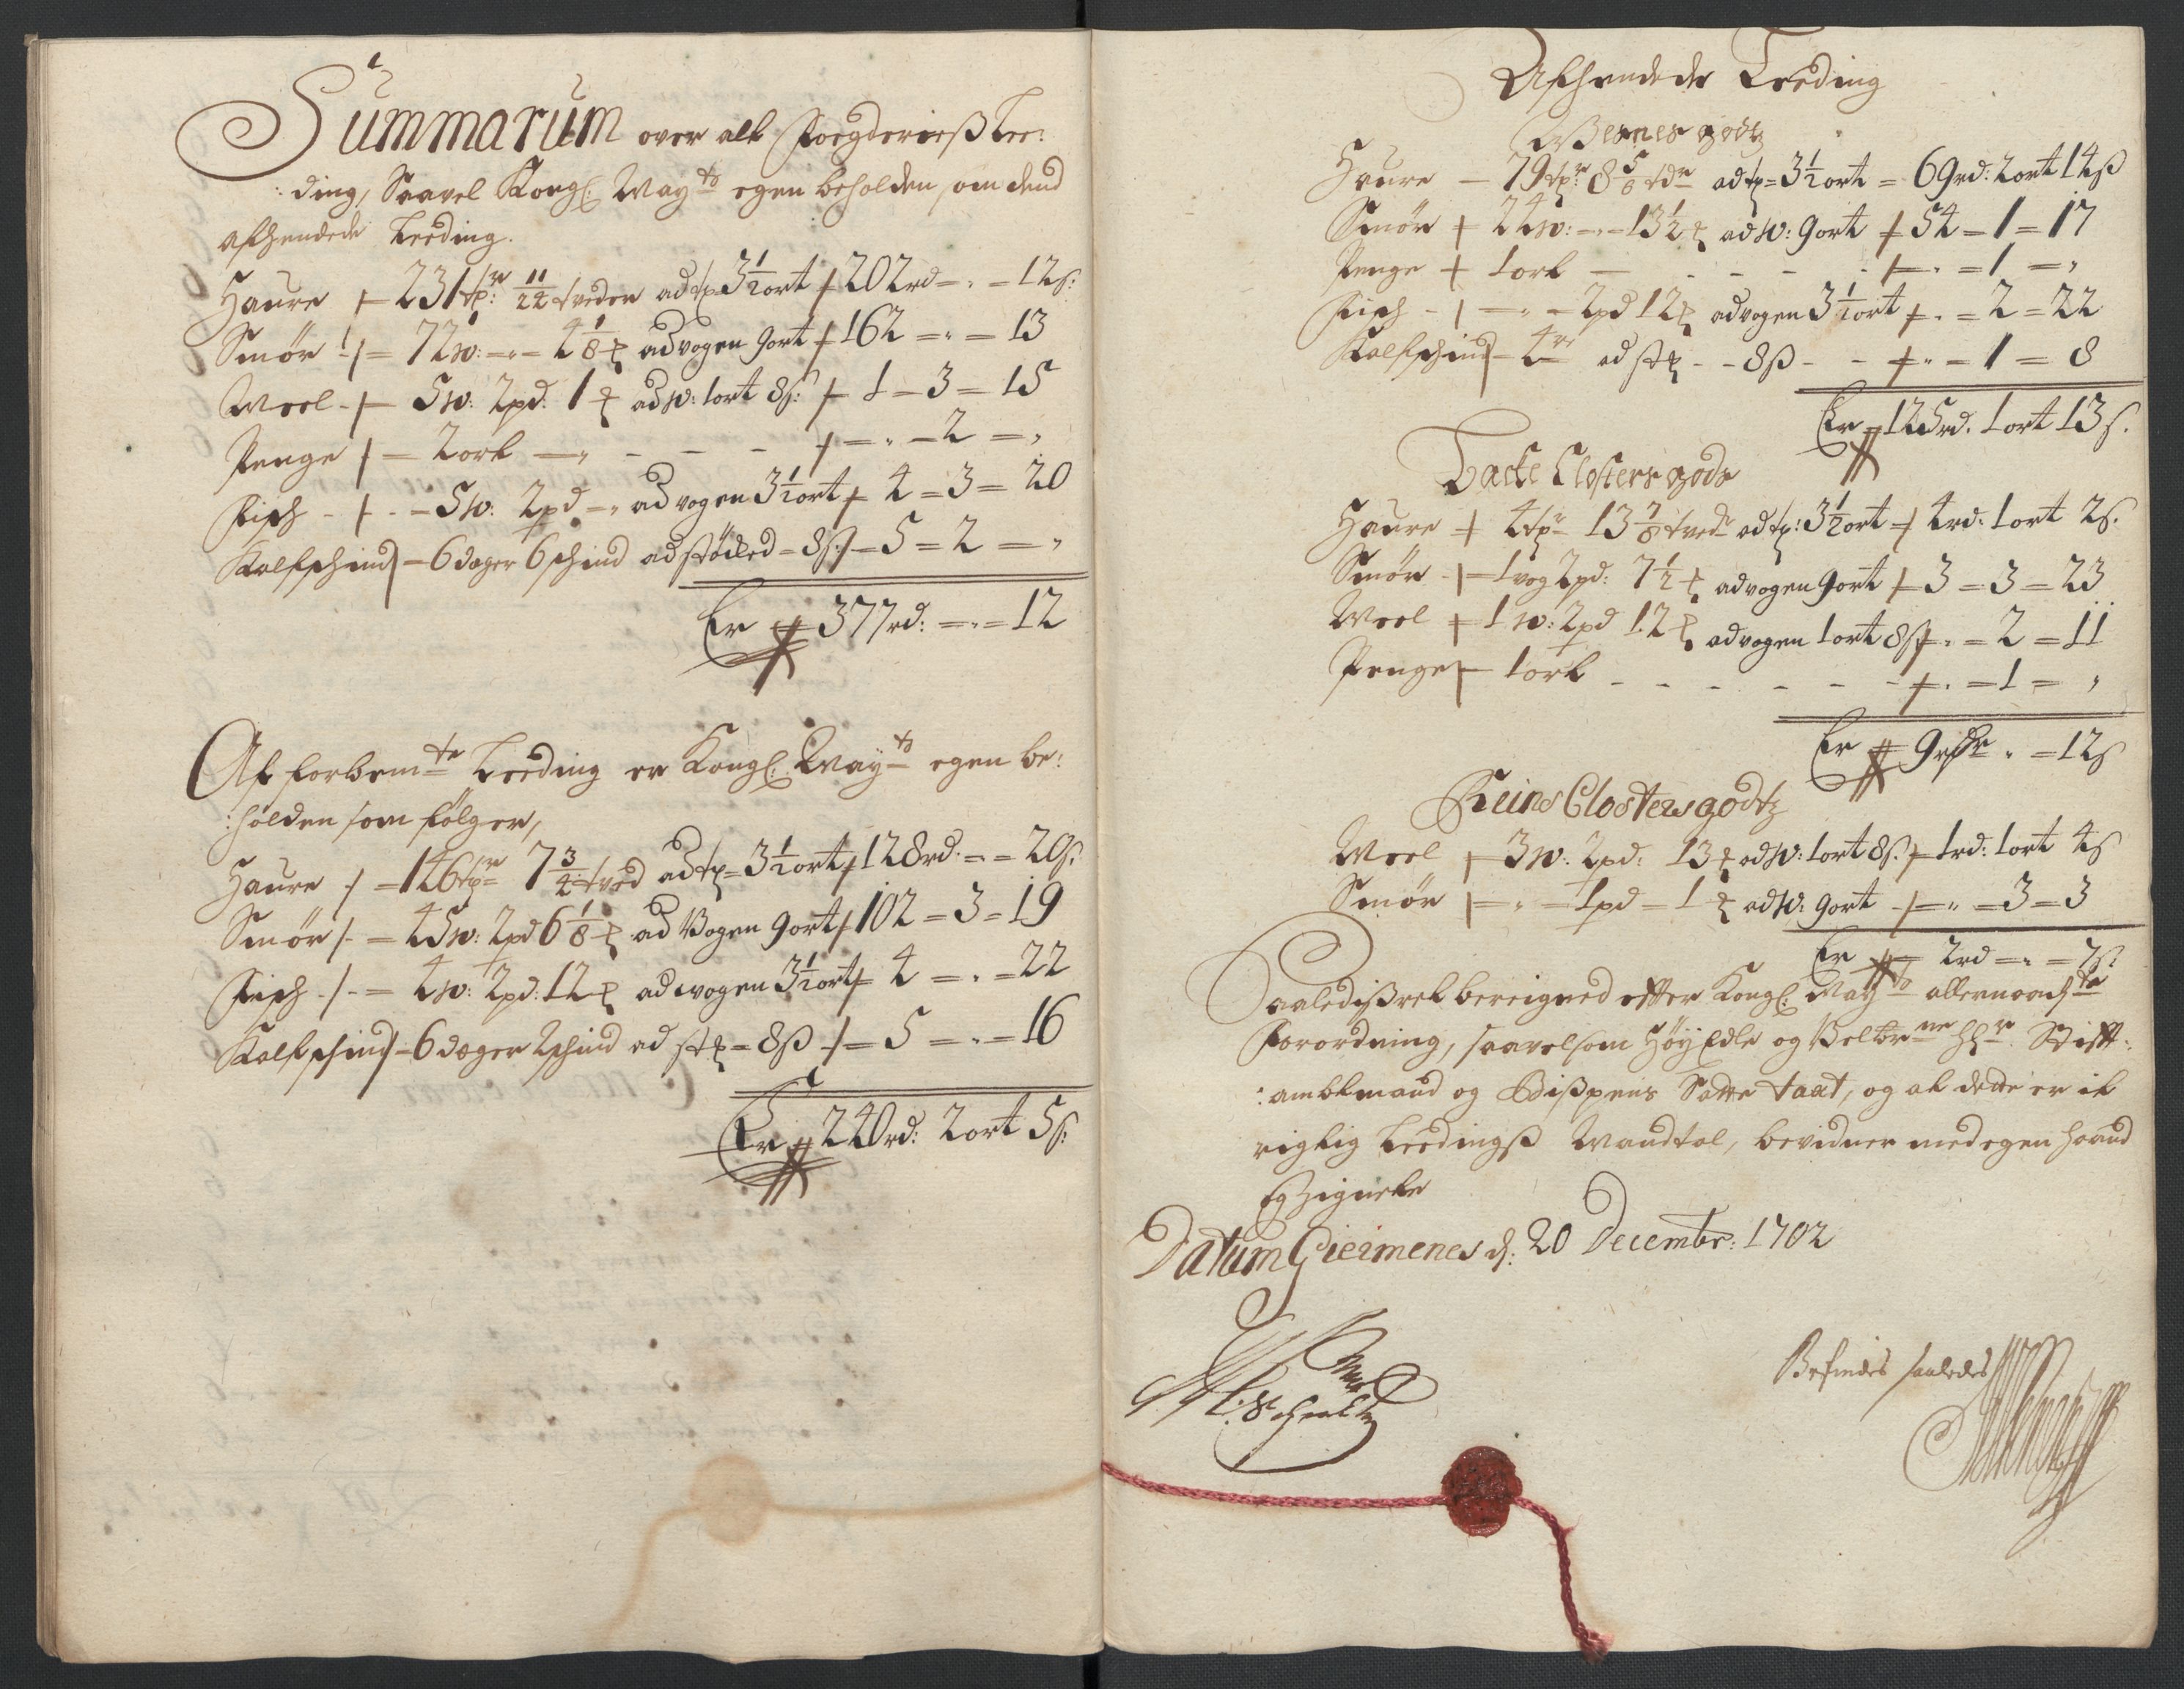 Summarum over alt Foegderiets Lee:
:ding, Saavel Kongl: Mayts egen beholden som dend
afhendede Leeding.
Haure 231 tp: 11/24 tveder ad tp 3½ ort 202 rd = " = 12 s:
Smør 72 w: = " = 4⅛ ad vogen 9 ort 162 = " = 13
Meel 5 w: 2 pd. 1 ad w: 1 ort 8 s: 1 = 3 = 15
Penge 2 ort " = 2 = "
Fisch 5 w: 2 pd = " ad vogen 3½ ort 4 = 3 = 20
Kalfschind 6 deger 6 schind ad støcked = 8 s: 5 = 2 = "
Er 377 rd: = " = 12
Af forbemte Leeding er Kongl: Mayts egen be:
:holden som følger,
Haure 146 tp 7¾ tved ad tp = 3½ ort 128 rd: = " = 20 s:
Smør 45 w: 2 pd 6⅛ ad Vogen 9 ort 102 = 3 = 19
Fisch 4 w: 2 pd: 12 ad wogen 3½ ort 4 = " = 22
Kalfschind 6 deger 2 schind ad st = 8 ß 5 = " = 16
Er 240 rd: 2 ort 5 s:
Afhendede Leeding
Wernes godtz
Haure 79 tp: 8⅝ tdr ad tp = 3½ ort = 69 rd: 2 ort 14 ß
Smør 24 w: = " = 13½ ad w: 9 ort 54 = 1 = 17
Penge 1 ort " = 1 = "
Fisch " = 2 pd 12 ad vogen 3½ ort " = 2 = 22
Kalfschind 4 ad st 8 ß " = 1 = 8
Er 125 rd. 1 ort 13 s.
Backe Closters gods
Haure 4 tp 13⅞ tved ad tp: 3½ ort 4 rd: 1 ort 2 s.
Smør 1 vog 2 pd: 7½ ad vogen 9 ort 3 = 3 = 23
Meel 1 w: 2 pd 12 ad vogen 1 ort 8 s " = 2 = 11
Penge 1 ort " = 1 = "
Er 9 rdr " = 12 s
Reins Closters godtz
Meel 3 w: 2 pd: 13 ad w: 1 ort 8 s. 1 rd: 1 ort 4 s
Smør " = 1 pd = 1 ad w: 9 ort " = 3 = 3
Er 2 rd = " = 7 s:
Saaledis ret bereigned efter Kongl: Mayts allernaadste
Forordning, saavelsom Høy Edle og Velbrne Hhr Stifft:
:ambtmand og Bispens Satte taxt, og at dette er it
rigtig Leedings Mandtal, bevidner med egen haand
og Zignete
Datum Gieimenes d: 20 Decembr: 1702
Befindes saaledes